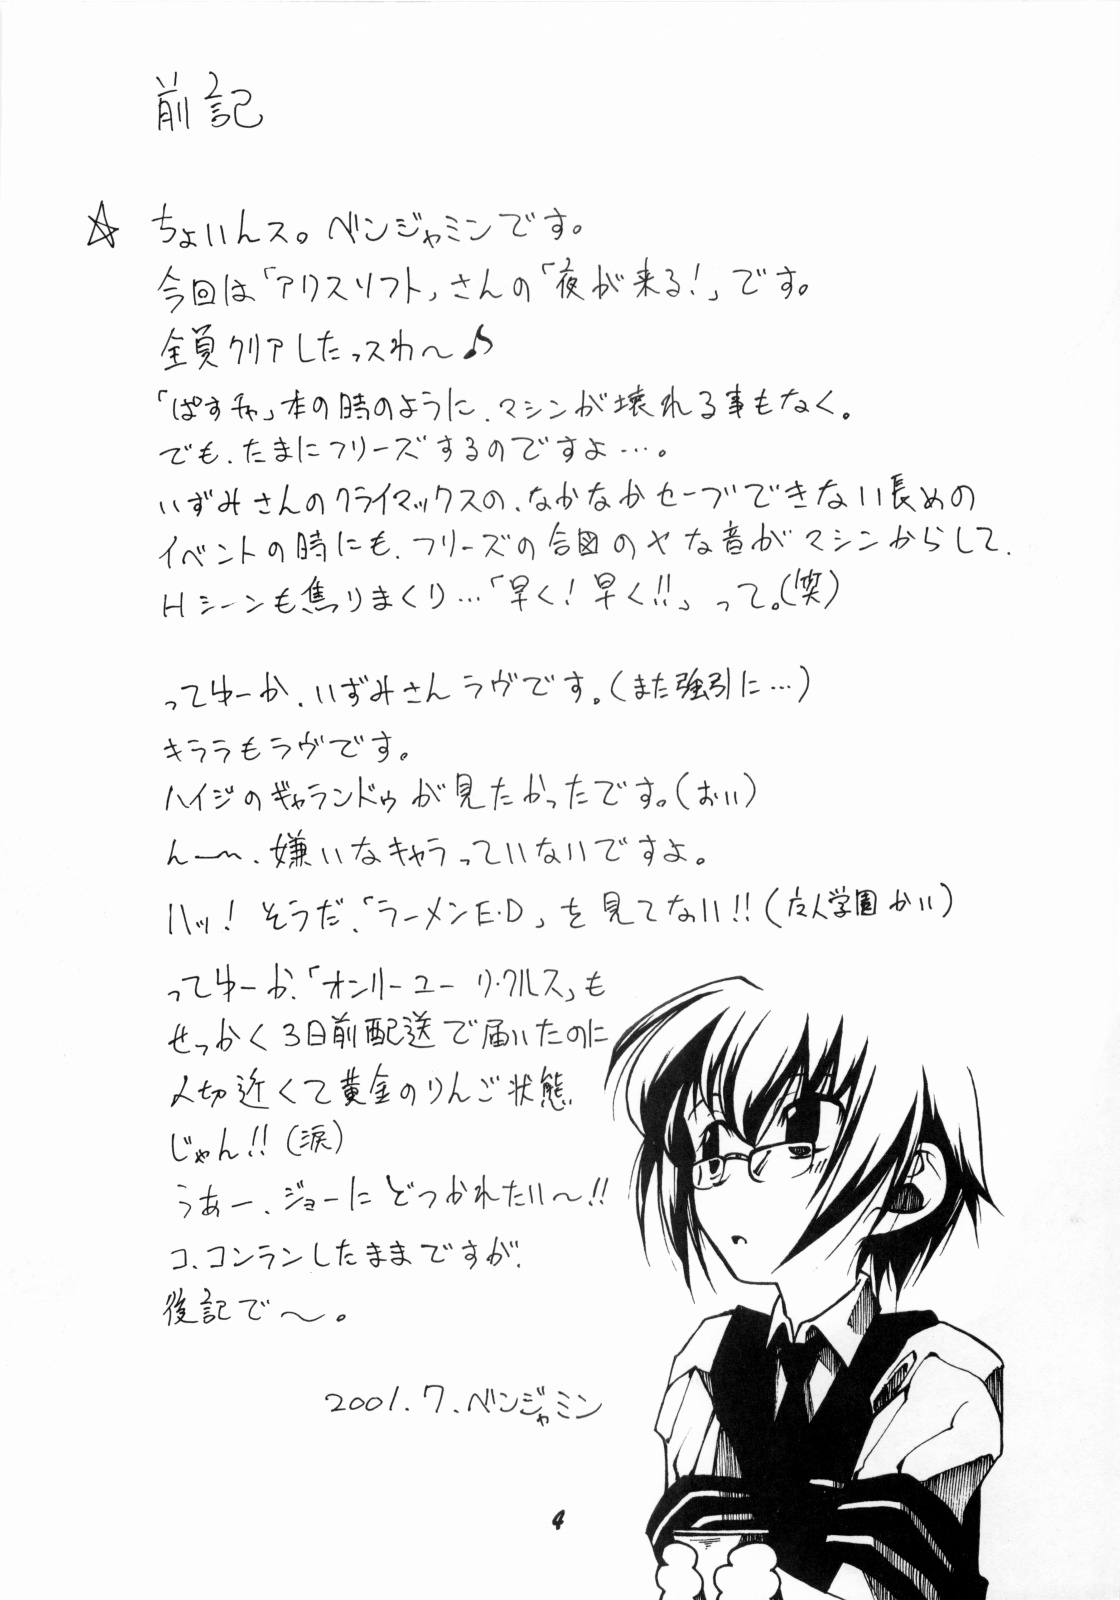 前記
☆ ちょいんス。ベンジャミンです。
今回は「アリスソフト」さんの「夜が来る!」です。
全員クリアしたっスわ〜♪
「ぱすチャ」本の時のように、マシンが壊れる事もなく。
でも、たまにフリーズするのですよ…。
いずみさんのクライマックスの、なかなかセーブできない長めの
イベントの時にも、フリーズの合図のヤな音がマシンからして、
Hシーンも焦りまくり…「早く!早く!!」って。(笑)
ってゆーか、いずみさんラヴです。(また強引に…)
キララもラヴです。
ハイジのギャランドゥが見たかったです。(おい)
んー〜、嫌いなキャラっていないですよ。
ハッ! そうだ、「ラーメンE・D」を見てない!!(友人学園かい)
ってゆーか、「オンリーユー リ・クルス」も
せっかく3日前配送で届いたのに
〆切近くて黄金のりんご状態
じゃん!!(涙)
うあー、ジョーにどつかれたい〜!!
コ、コンランしたままですが、
後記で〜。
2001.7.ベンジャミン
4